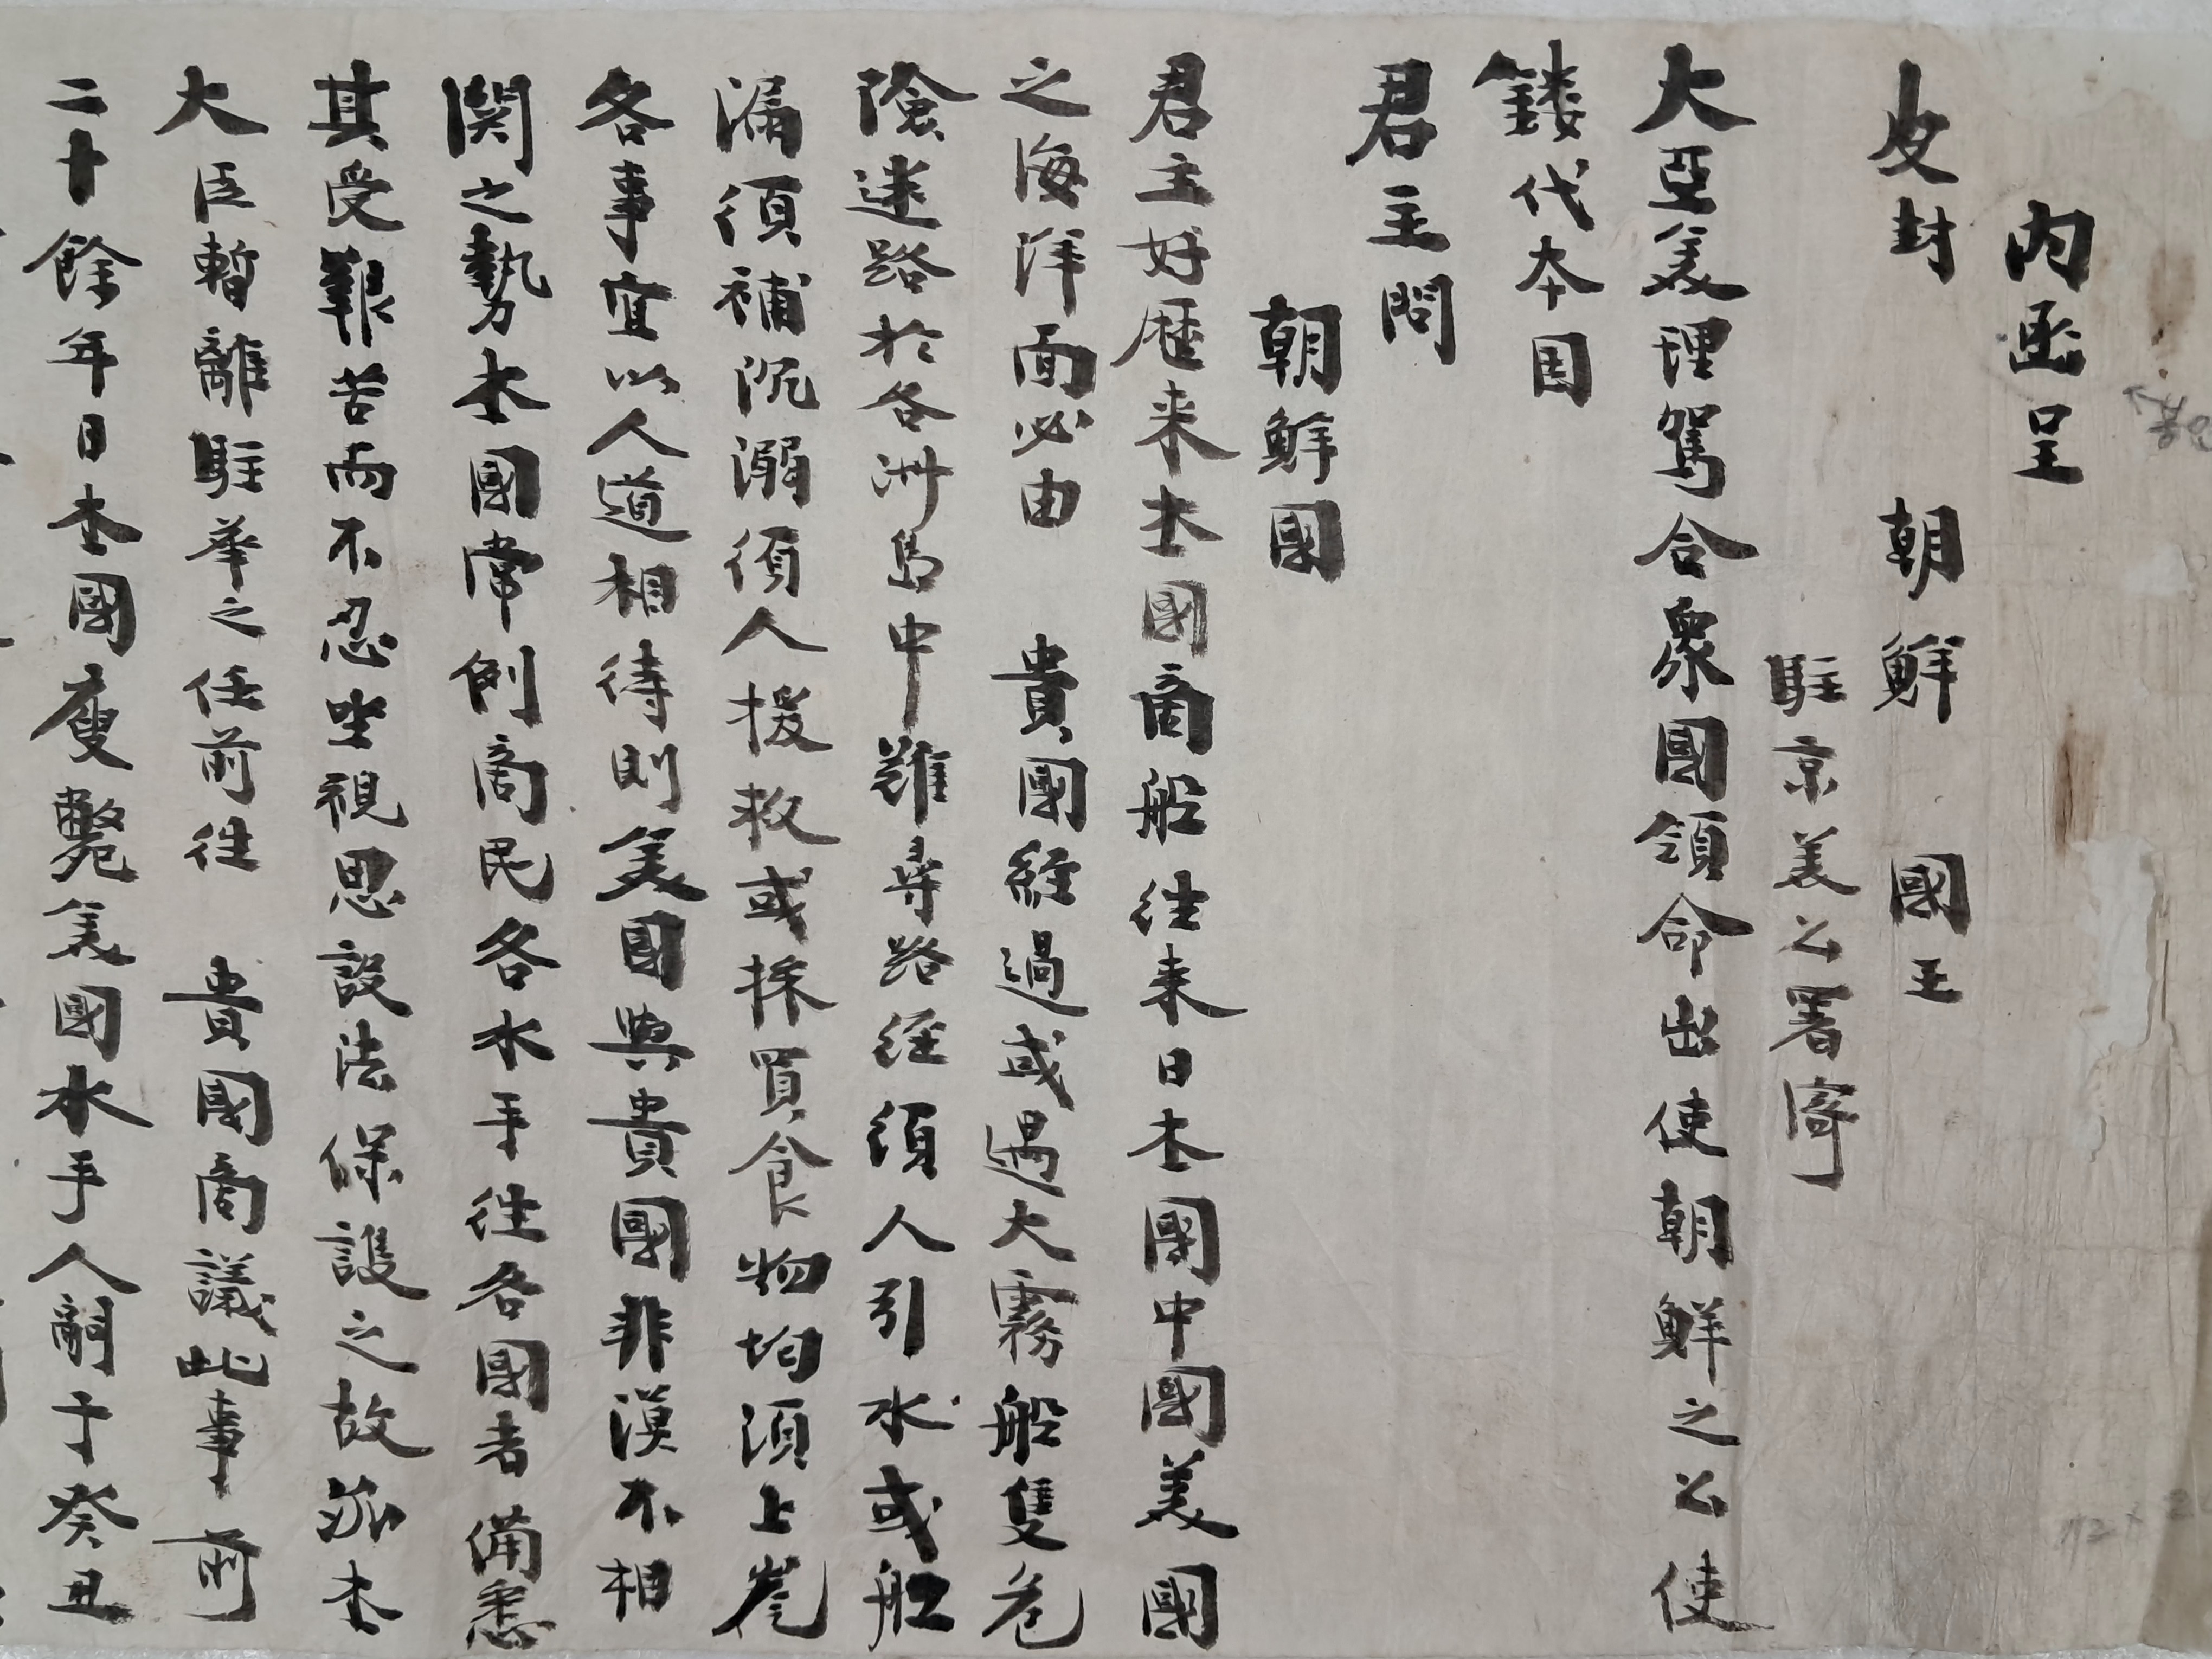 內函呈
皮封 朝鮮 國王
駐京美公署寄
大亞美理駕合衆國領命出使朝鮮之公使
鏤代本国
君主問
朝鮮國
君主好歷来本國商船往来日本國中國美國
之海洋面必由 貴國經過或遇大霧船隻危
險迷路於各洲島中難尋路徑須人引水或船
漏須補沉溺須人援救或採買食物均須上崖
各事宜以人道相待則美國與貴國非漠不相
関之勢本國常例商民各水手徃各國者備悉
其受艱苦而不忍坐視思設法保護之故派本
大臣暫離駐華之任前徃 貴國商議此事前
二十餘年日本國瘦斃美國水手人嗣于癸丑